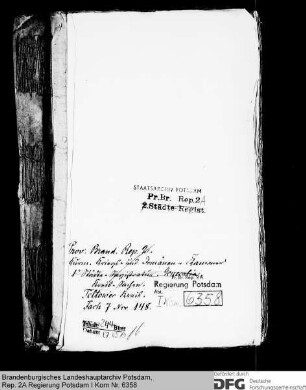 STAATSARCHIV POTSDAM
Pr.Br. Rep.2A
2.Städte-Regist
Prov. Brand. Rep. 2.
Kurm. Kriegs- und Domänen-Kammer
Städte-Registratur
Regierung Potsdam
I Kom 6358
Teltower Kreis.
Fach 7. Nro 148.
Brandenburgisches Landeshauptarchiv Potsdam,
Rep. 2A Regierung Potsdam I Kom Nr. 6358
Gefördert durch
DFG
Deutsche
Forschungsgemeinschaft